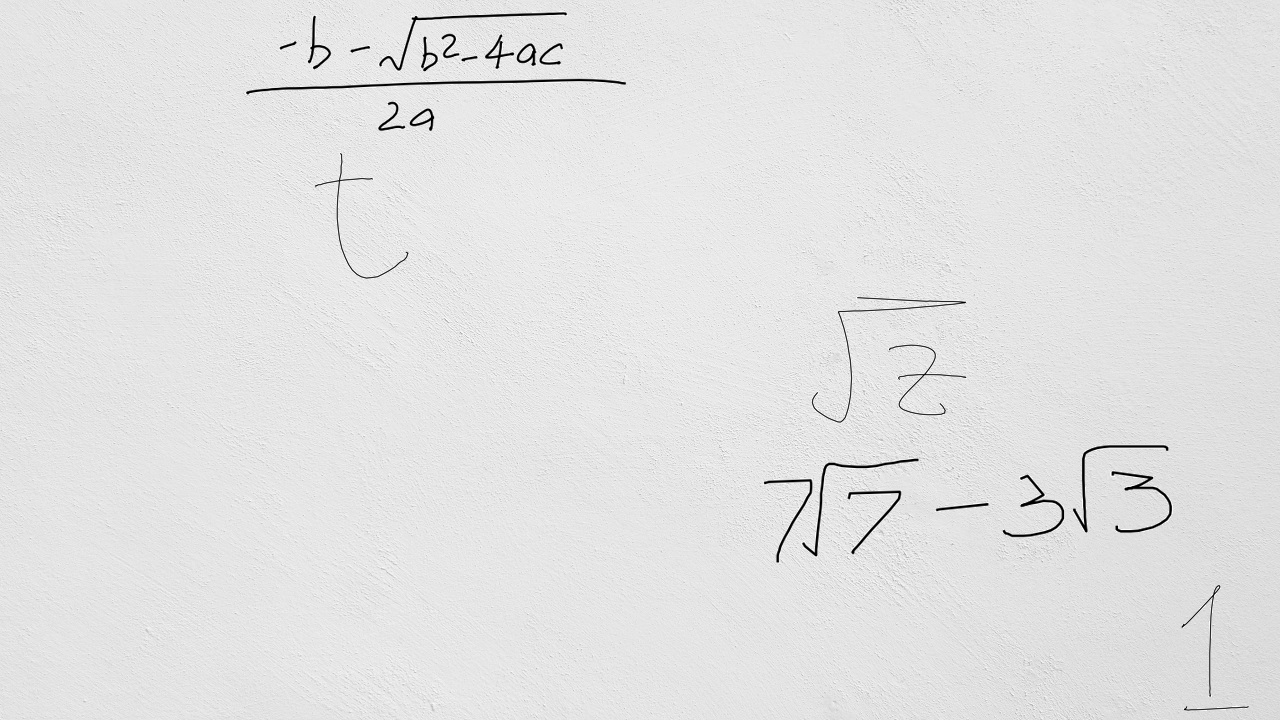 \frac{-b-\sqrt{b^2-4ac}}{2a}
t
\sqrt{z}
7\sqrt{7}-3\sqrt{3}
1